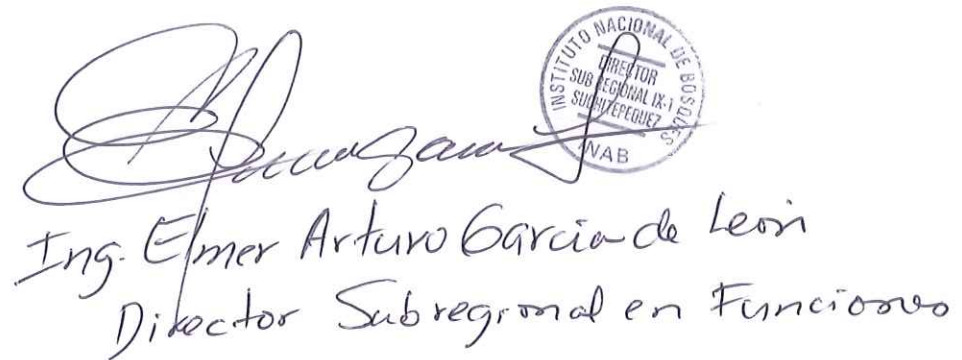 INSTITUTO NACIONAL DE BOSQUES
DIRECTOR
SUB REGIONAL IX-1
SUCHITEPEQUEZ
INAB
Ing. Elmer Arturo Garcia de León
Director Subregional en Funciones